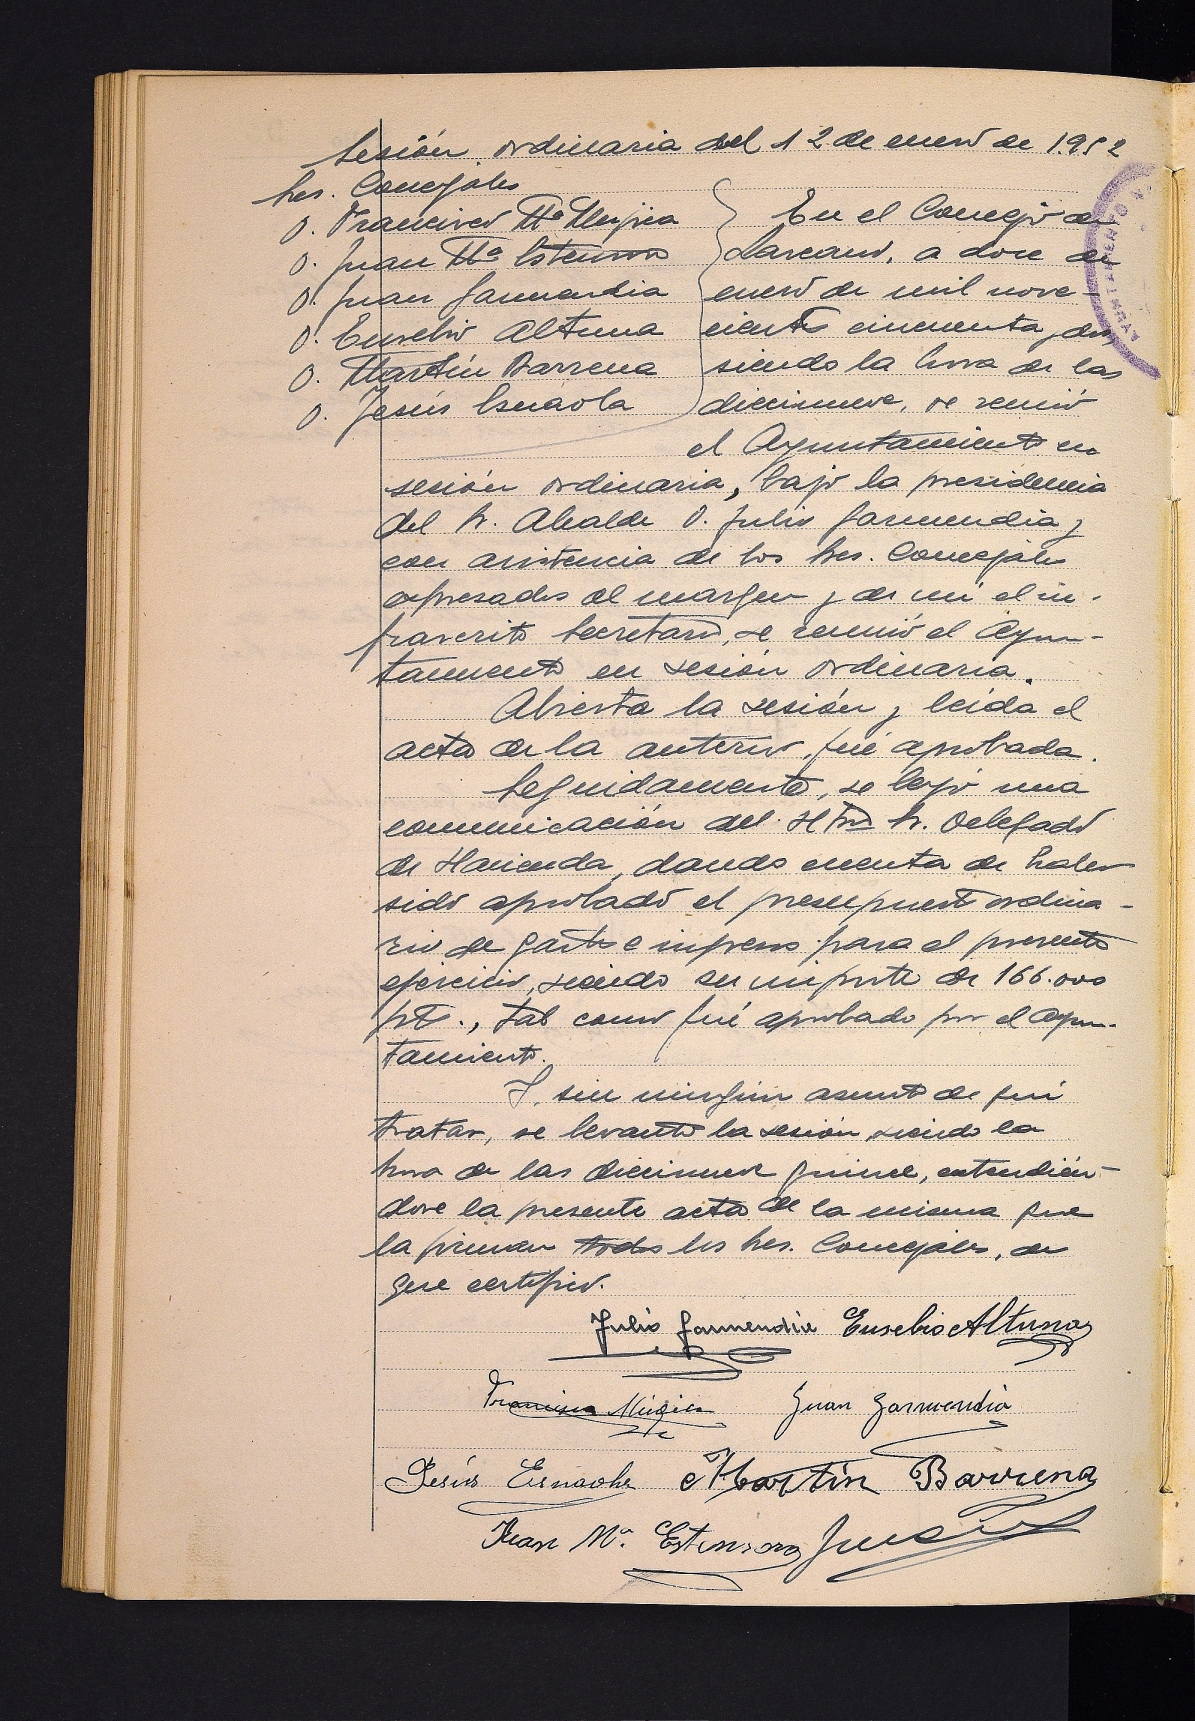 Sesión ordinaria del 12 de enero de 1.952
Sres. Concejales
D. Francisco Mª Mujica
D. Juan Mª Estensoro
D. Juan Garmendia
D. Eusebio Altuna
D. Martín Barrena
D. Jesús Esnaola
En el Concejo de
Larcano, a doce de
enero de mil nove-
cientos cincuenta y dos
siendo la hora de las
diecinueve, se reunió
el Ayuntamiento en
sesión ordinaria, bajo la presidencia
del Sr. Alcalde D. Julio Garmendia y
con asistencia de los Sres. Concejales
expresados al margen y de mí el in-
frascrito Secretario, se reunió el Ayun-
tamiento en sesión ordinaria.
Abierta la sesión y leída el
acta de la anterior, fué aprobada.
Seguidamente, se leyó una
comunicación del Iltmo Sr. Delegado
de Hacienda, dando cuenta de haber
sido aprobado el presupuesto ordina-
rio de gastos e ingresos para el presente
ejercicio, siendo su importe de 166.000
pts., tal como fué aprobado por el Ayun-
tamiento.
Y sin ningún asunto de que
tratar, se levantó la sesión siendo la
hora de las diecinueve quince, extendién-
dose la presente acta de la misma que
la firman todos los Sres. Concejales, de
que certifico.
Julio Garmendia Eusebio Altuna
Francisco Mugica Juan Garmendia
Jesús Esnaola Martín Barrena
Juan Mª Estensoro
AYUNTAMIENTO